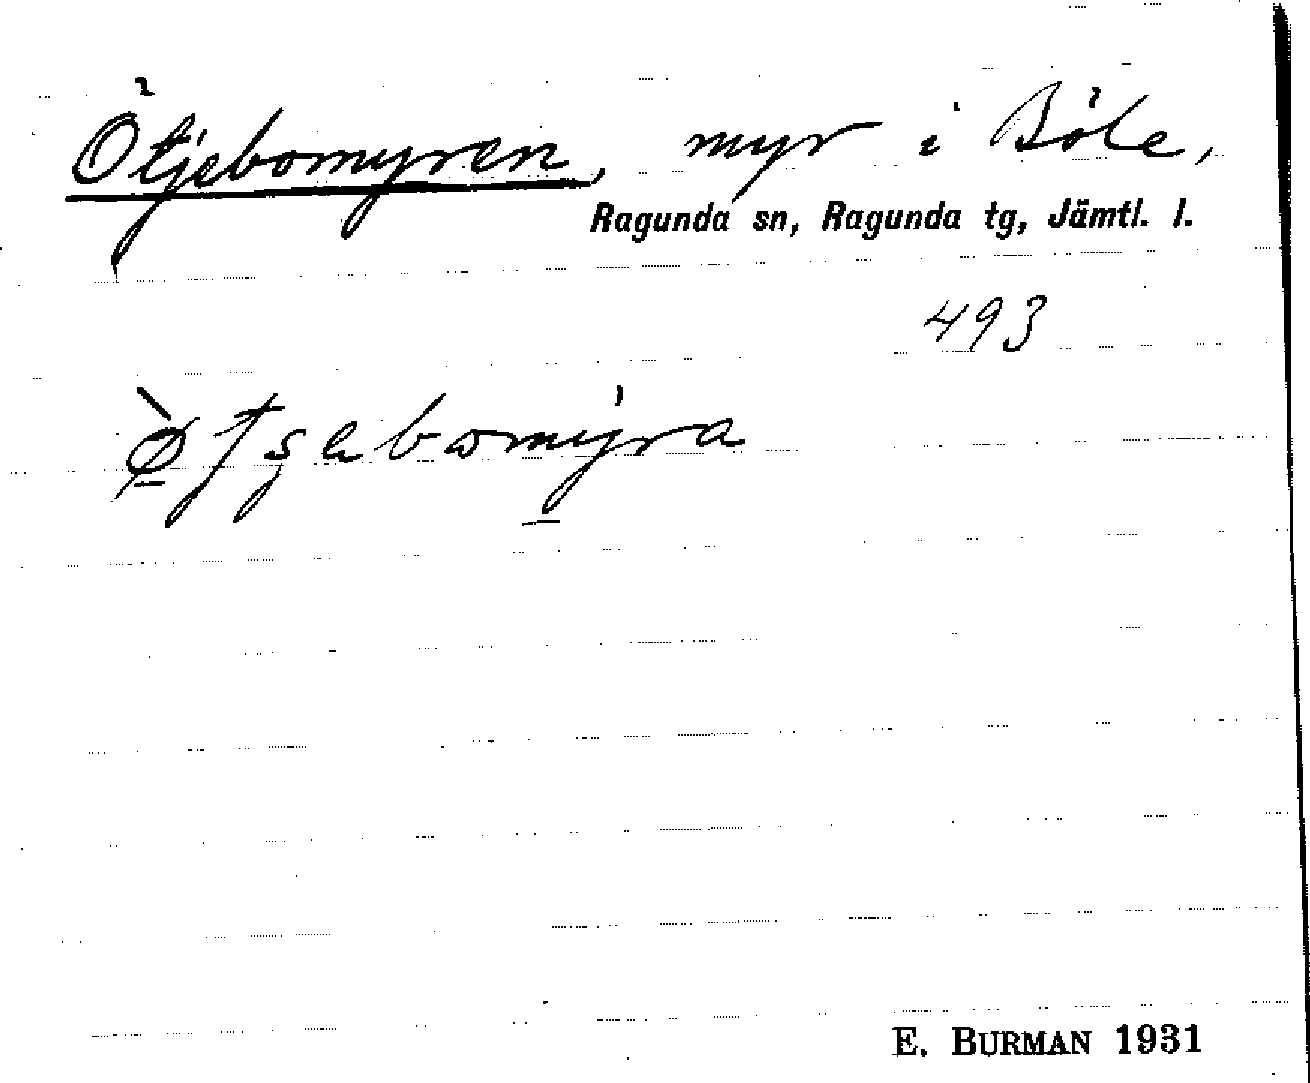 Ötjebomyren, myr i Böle,
Ragunda sn, Ragunda tg, Jämtl. l.
493
E. BURMAN 1931